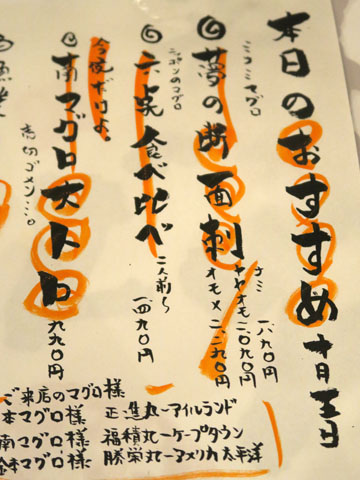 本日のおすすめ 十月五日
ミコミマグロ
◎夢の断面刺
ナミ 一八九〇円
ヤヤオモ 二〇九〇円
オモメ 二二九〇円
◎六点食べ比べ 二人前〜 一四九〇円
今度だけよ。
◎南マグロ大トロ 九九〇円
売切ゴメンネ
ご来店のマグロ様
本マグロ様 正進丸ーアイルランド
南マグロ様 福積丸ーケープタウン
勝栄丸ーアメリカ太平洋